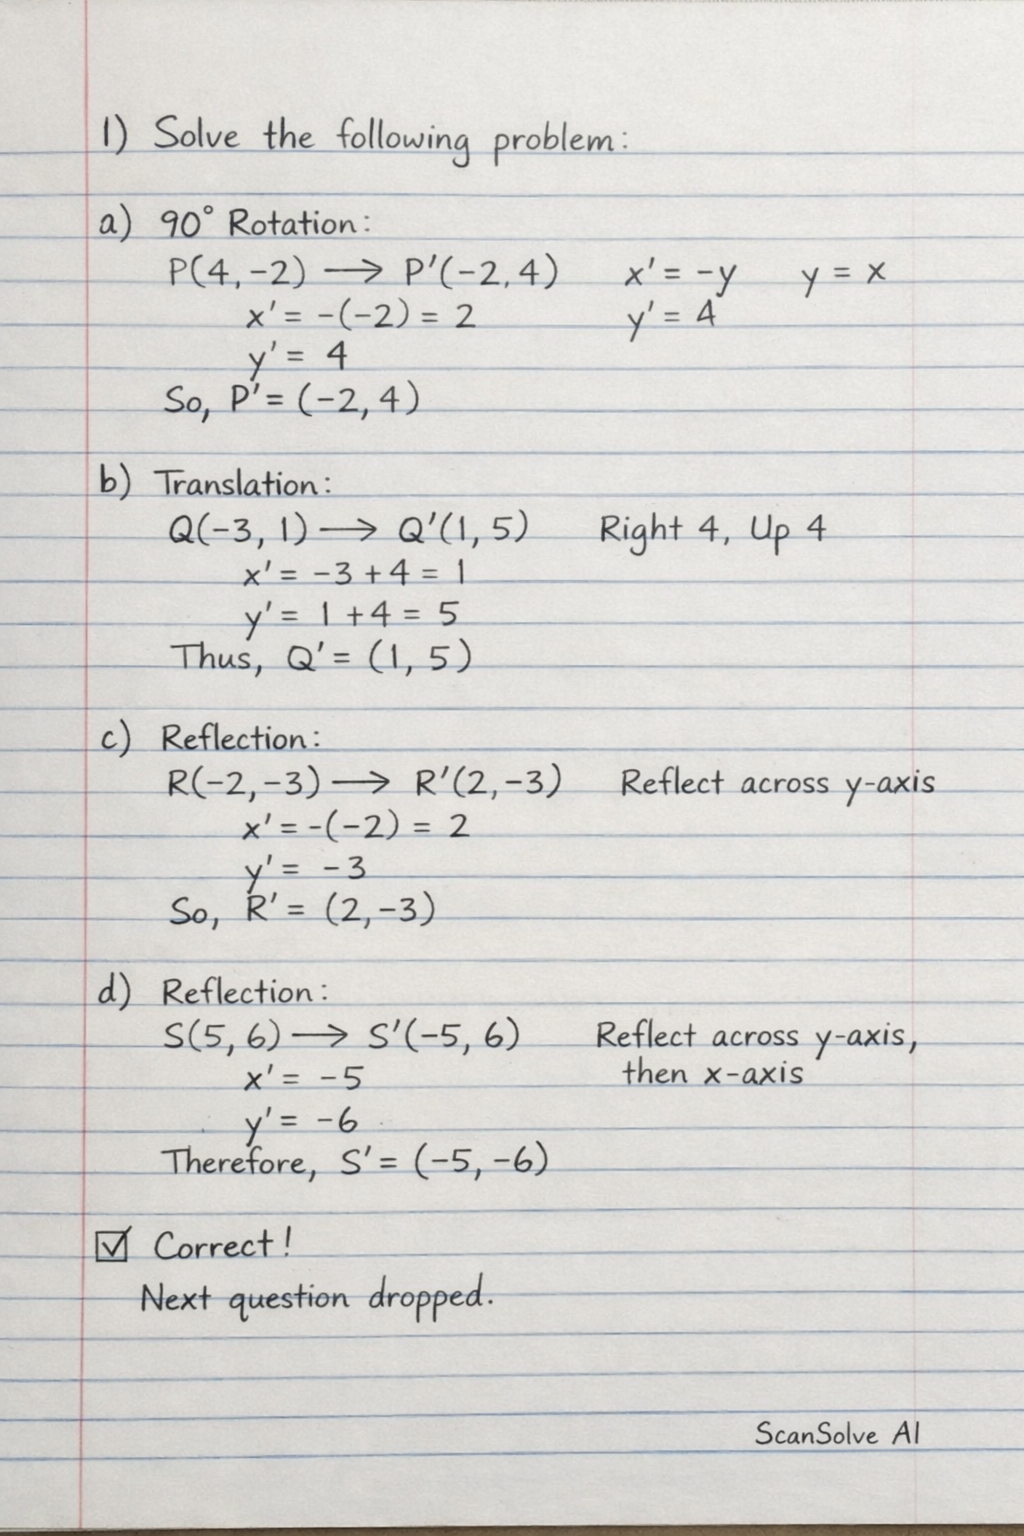 1) Solve the following problem:
a) 90° Rotation:
P(4, -2) → P'(-2, 4) x' = -y y = x
x' = -(-2) = 2 y' = 4
y' = 4
So, P' = (-2, 4)
b) Translation:
Q(-3, 1) → Q'(1, 5) Right 4, Up 4
x' = -3 + 4 = 1
y' = 1 + 4 = 5
Thus, Q' = (1, 5)
c) Reflection:
R(-2, -3) → R'(2, -3) Reflect across y-axis
x' = -(-2) = 2
y' = -3
So, R' = (2, -3)
d) Reflection:
S(5, 6) → S'(-5, 6) Reflect across y-axis,
then x-axis
x' = -5
y' = -6
Therefore, S' = (-5, -6)
☑ Correct!
Next question dropped.
ScanSolve AI